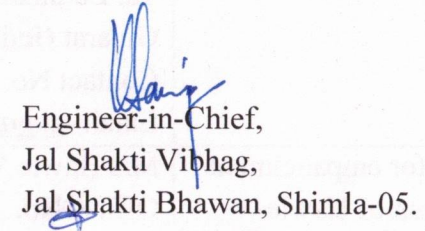 Engineer-in-Chief,
Jal Shakti Vibhag,
Jal Shakti Bhawan, Shimla-05.